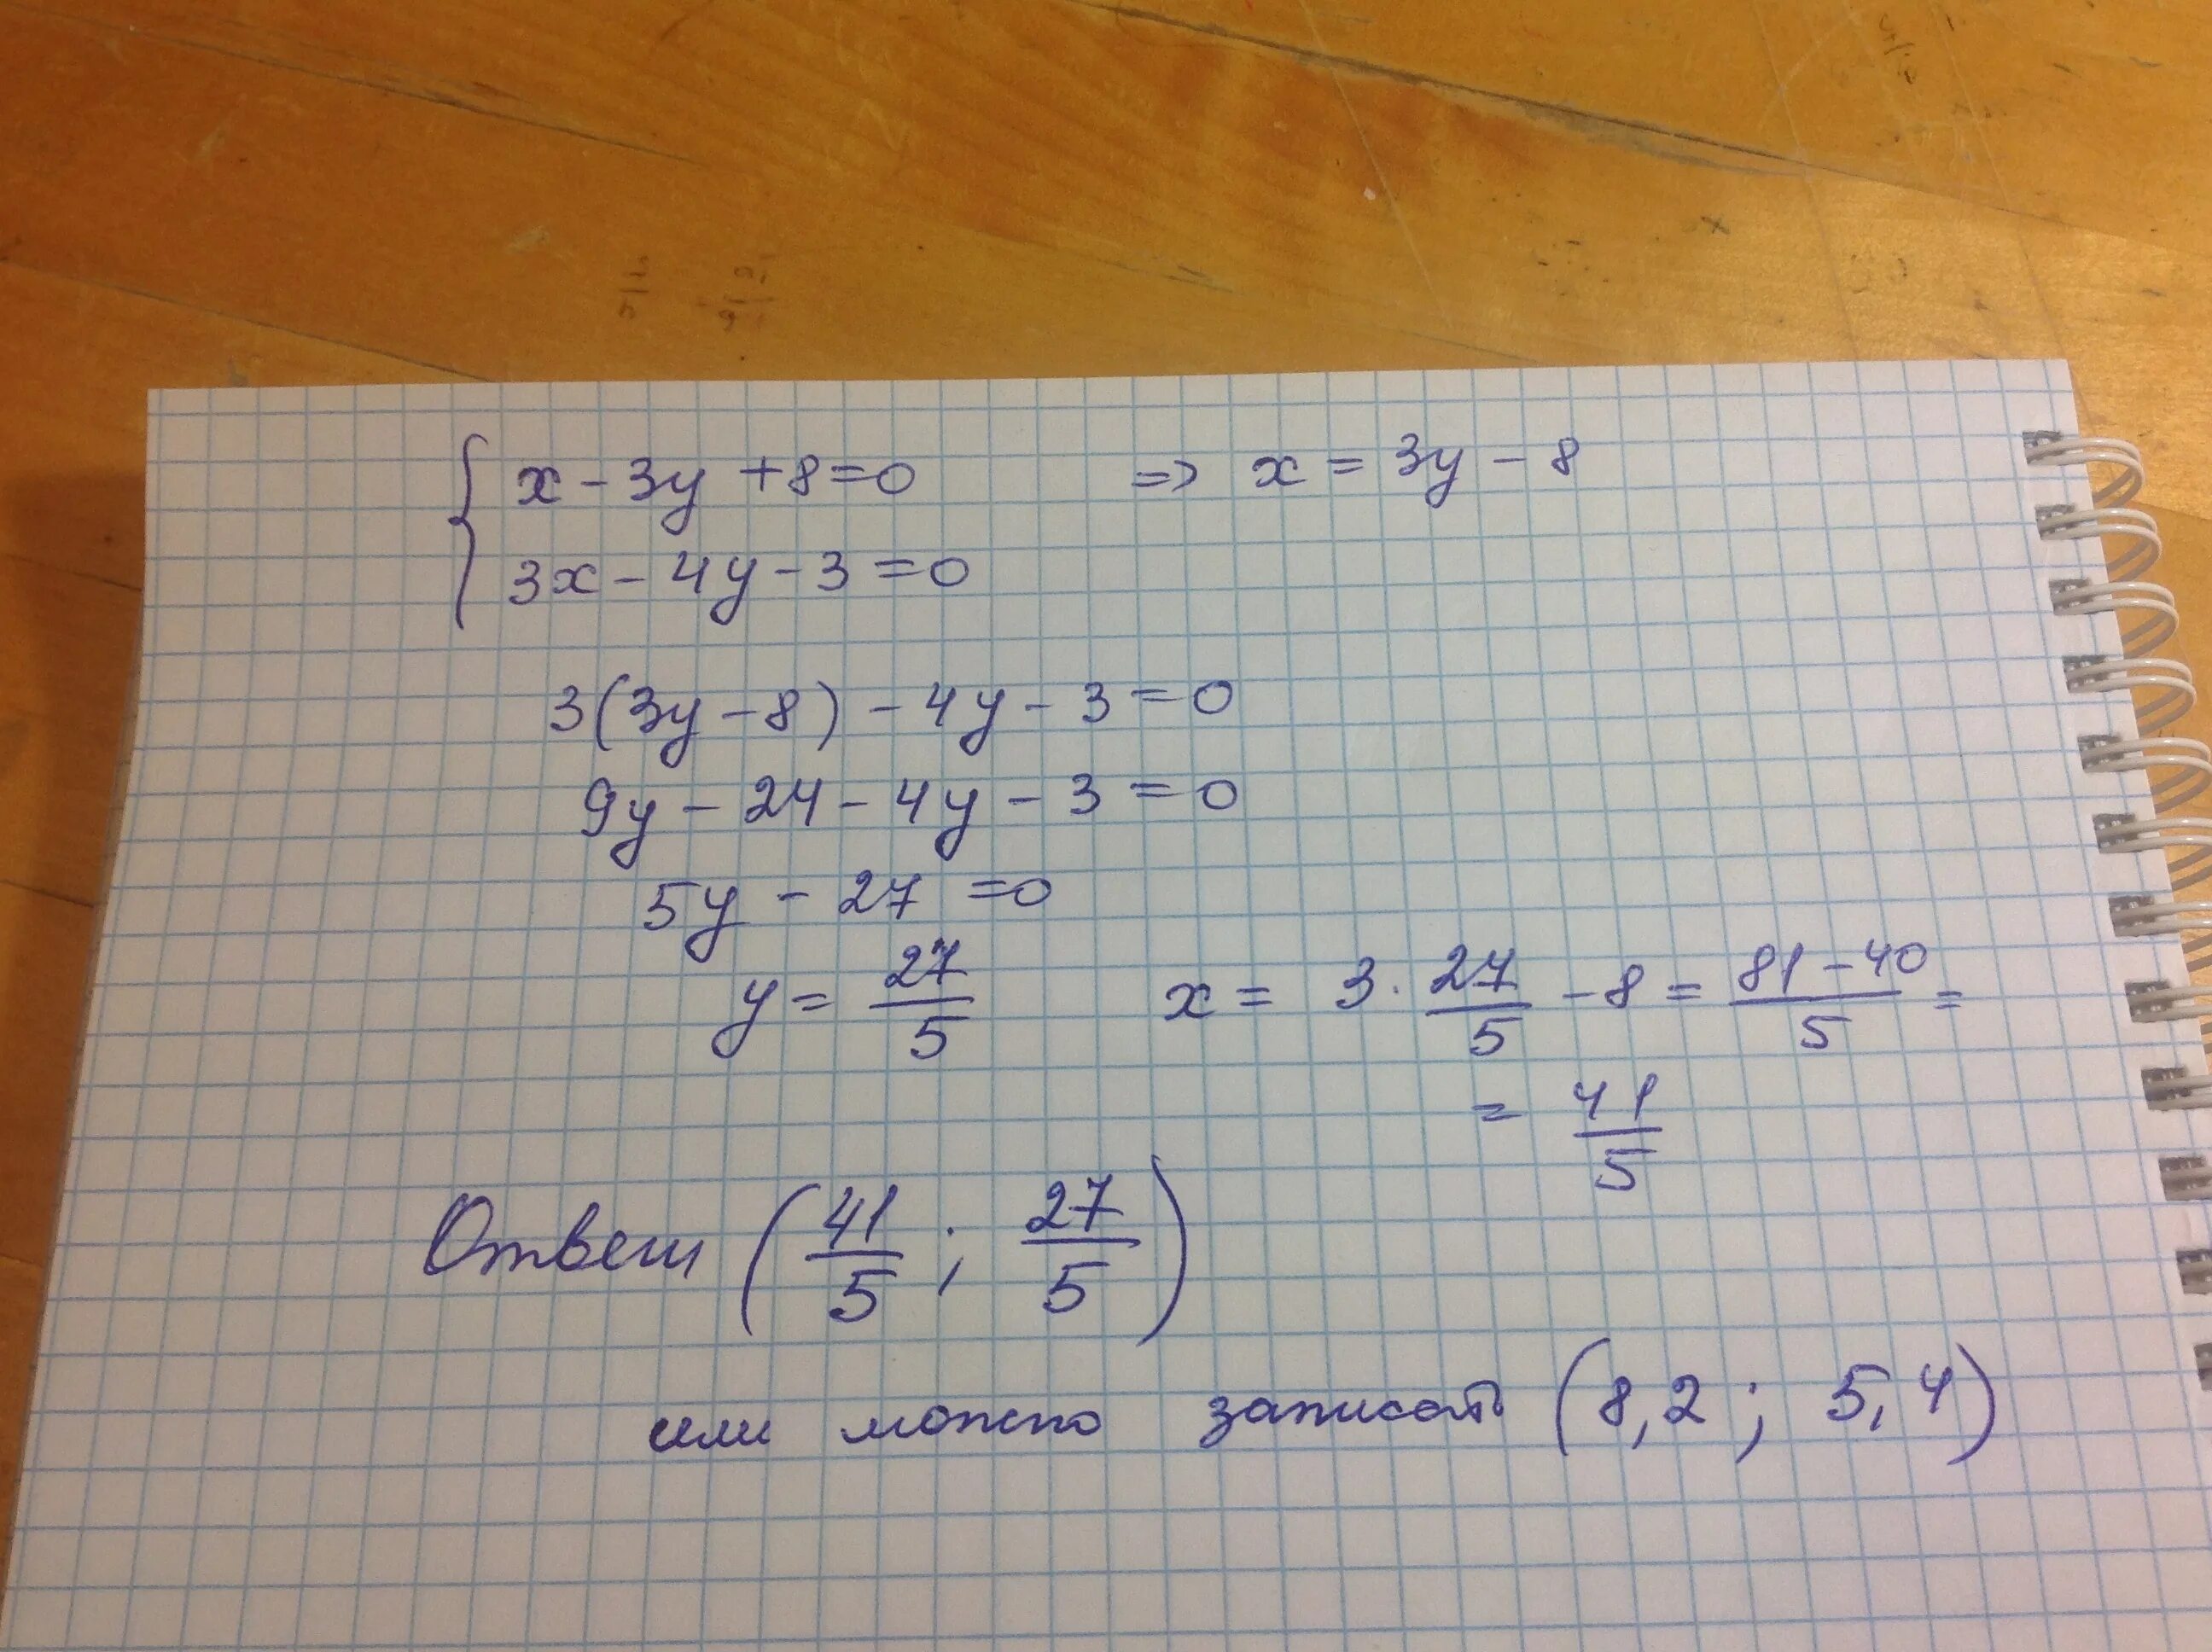 x - 3y + 8 = 0 => x = 3y - 8
3x - 4y - 3 = 0
3(3y - 8) - 4y - 3 = 0
9y - 24 - 4y - 3 = 0
5y - 27 = 0
y = 27/5 x = 3 · 27/5 - 8 = (81 - 40)/5 =
= 41/5
Ответ (41/5 ; 27/5)
или можно записать (8,2 ; 5,4)